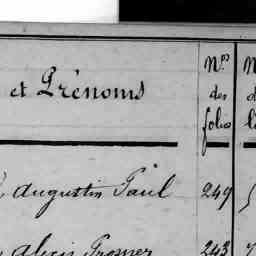 et Prénoms
Nos des folios
Augustin Paul 249
Alexis Prosper 243